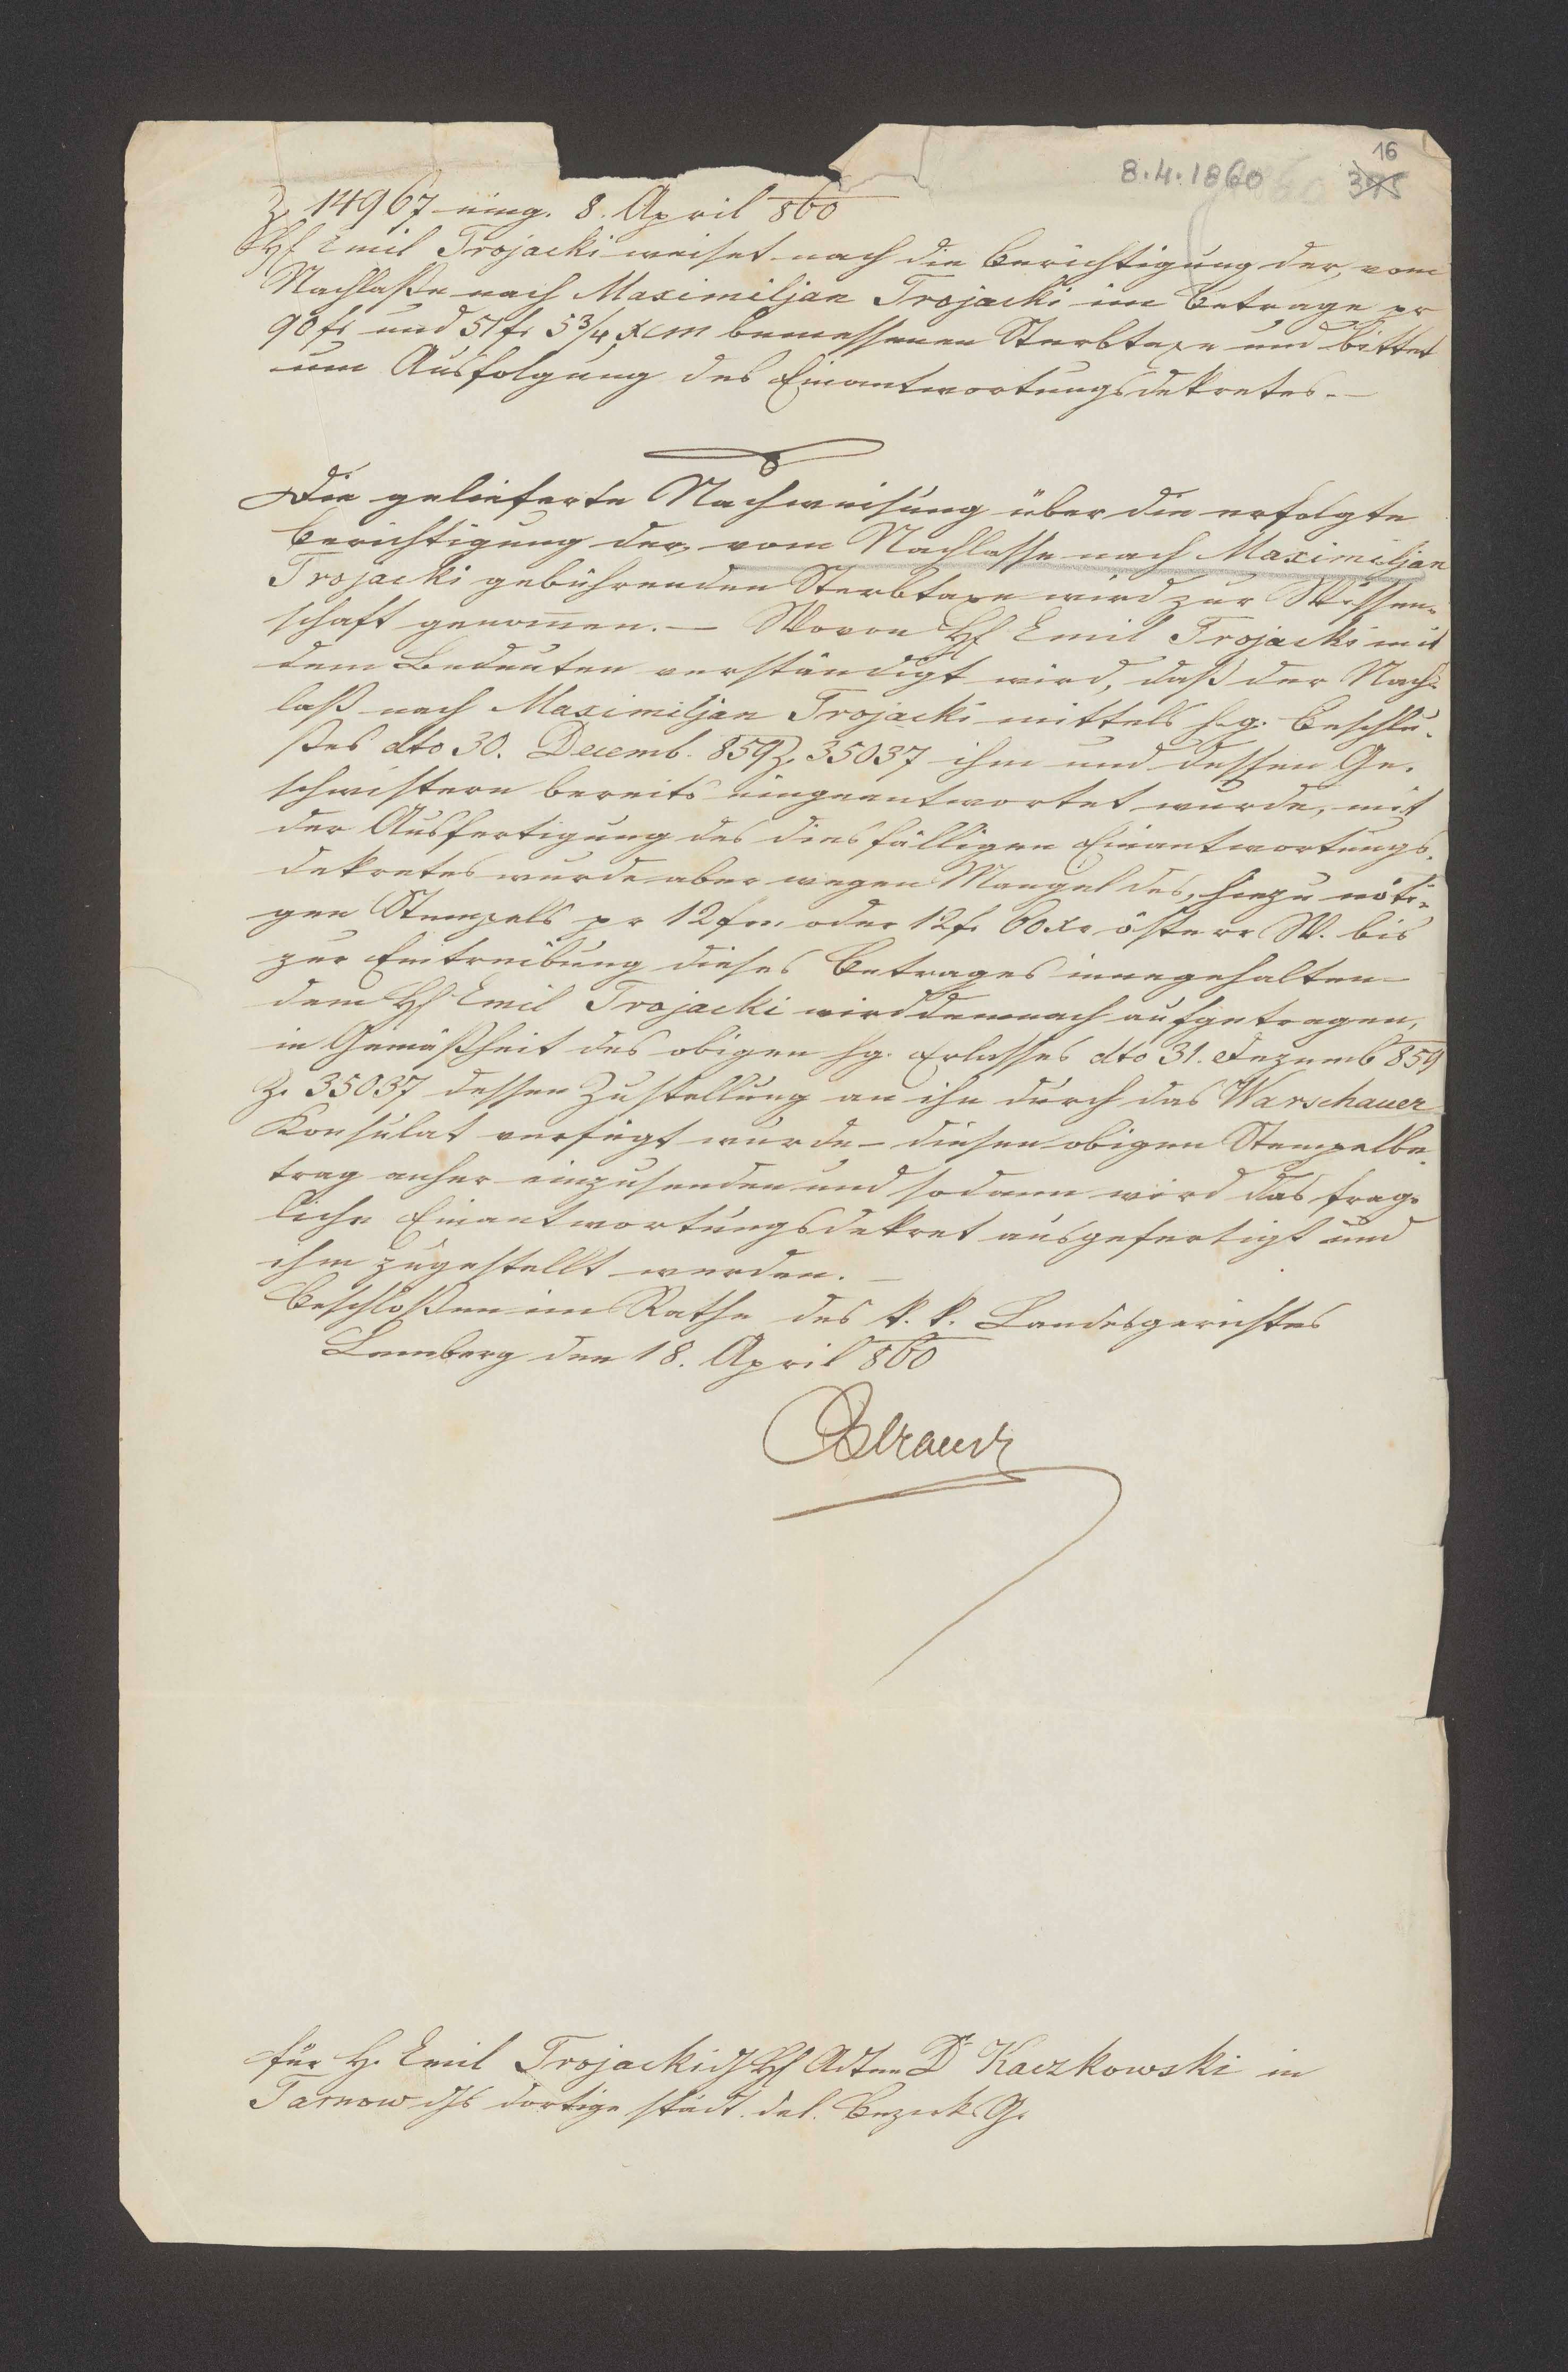 16
8.4.1860 375
Z. 14967 eing. 8. April 860
H. Emil Trojacki weiset nach die Berichtigung der, vom
Nachlaße nach Maximiljan Trojacki im Betrage pr
90 fr und 51 fr 5 3/4 x CM bemessenen Sterbtaxe und bittet
um Ausfolgung des Einantwortungsdekretes.—
Die gelieferte Nachweisung über die erfolgte
Berichtigung der, vom Nachlasse nach Maximiljan
Trojacki gebührenden Sterbtaxe wird zur Wissen-
schaft genommen.— Wovon H. Emil Trojacki mit
dem Bedeuten verständigt wird, daß der Nach-
laß nach Maximiljan Trojacki mittels h.g. Beschlu-
ßes dto 30. Decemb. 859 Z. 35037 ihm und dessen Ge-
schwistern bereits eingeantwortet wurde, mit
der Ausfertigung des diesfälligen Einantwortungs-
dekretes wurde aber wegen Mangel des, hiezu nöti-
gen Stempels pr 12 fr oder 12 fr 60 xr österr W. bis
zur Eintreibung dieses Betrages innegehalten—
dem H. Emil Trojacki wird demnach aufgetragen,
in Gemäßheit des obigen hg. Erlasses dto 31. Dezemb 859
Z. 35037 dessen Zustellung an ihn durch das Warschauer
Konsulat verfügt wurde – diesen obigen Stempelbe-
trag anher einzusenden und sodann wird das frag-
liche Einantwortungsdekret ausgefertigt und
ihm zugestellt werden.—
Beschloßen im Rathe des k. k. Landesgerichtes
Lemberg den 18. April 860
für H. Emil Trojacki H. Adten Dr Kaczkowski in
Tarnow dortige städt. del. Bezirks G.